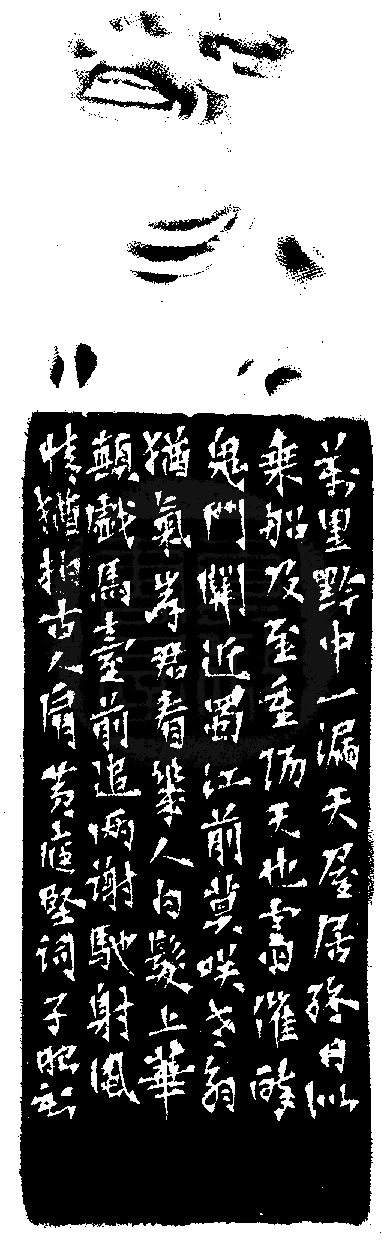 萬里黔中一漏天屋居終日似
乘船及至重陽天也霽催醉
鬼門關近蜀江前莫咲老翁
猶氣岸君看幾人白髮上華
顛戲馬臺前追兩謝馳射風
情猶拍古人肩黃庭堅詞子昭